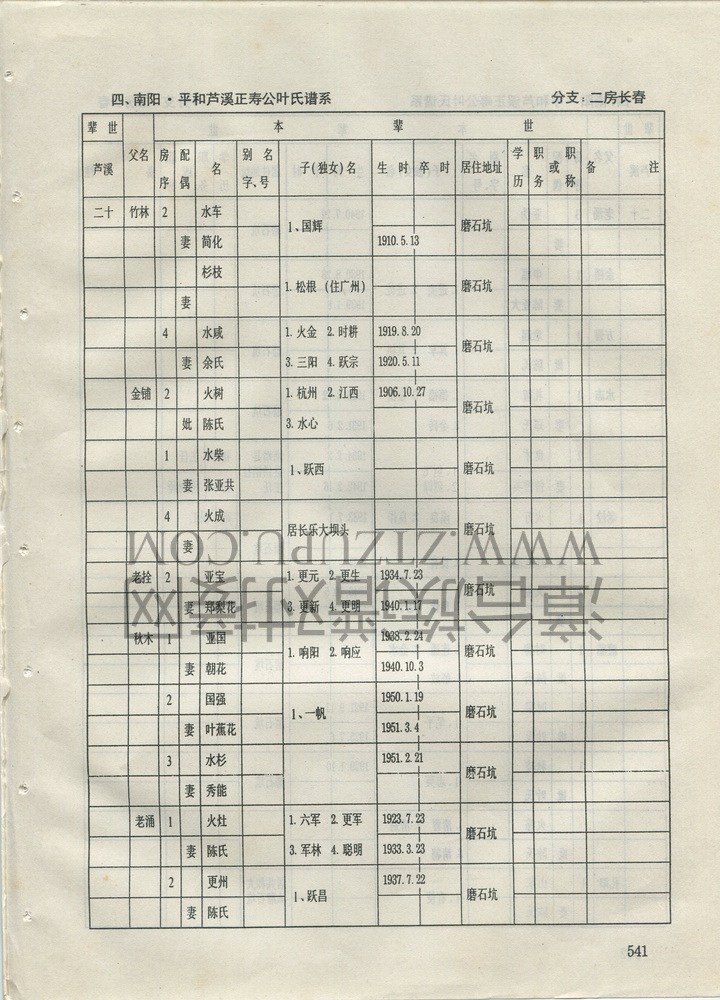 四、南阳·平和芦溪正寿公叶氏谱系 分支：二房长春
辈世 本 辈 世
芦溪 父名 房序 配偶 名 别名字、号 子(独女)名 生时 卒时 居住地址 学历 职务或职称 备注
二十 竹林 2 水车 1、国辉 磨石坑
妻 简化 1910.5.13
杉枝 1.松根 (住广州) 磨石坑
妻
4 水咸 1.火金 2.时耕 1919.8.20 磨石坑
妻 余氏 3.三阳 4.跃宗 1920.5.11
金铺 2 火树 1.杭州 2.江西 1906.10.27 磨石坑
妣 陈氏 3.水心
1 水柴 1、跃西 磨石坑
妻 张亚共
4 火成 居长乐大坝头 磨石坑
妻
老拴 2 亚宝 1.更元 2.更生 1934.7.23 磨石坑
妻 郑梨花 3.更新 4.更明 1940.1.17
秋木 1 亚国 1.响阳 2.响应 1938.2.24 磨石坑
妻 朝花 1940.10.3
2 国强 1、一帆 1950.1.19 磨石坑
妻 叶蕉花 1951.3.4
3 水杉 1951.2.21 磨石坑
妻 秀能
老涌 1 火灶 1.六军 2.更军 1923.7.23 磨石坑
妻 陈氏 3.军林 4.聪明 1933.3.23
2 更州 1、跃昌 1937.7.22 磨石坑
妻 陈氏
541
漳台族谱对接网
WWW.ZTZUPU.COM